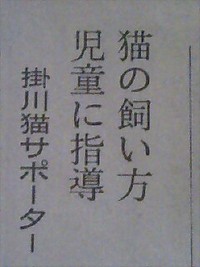 猫の飼い方
児童に指導
掛川猫サポーター